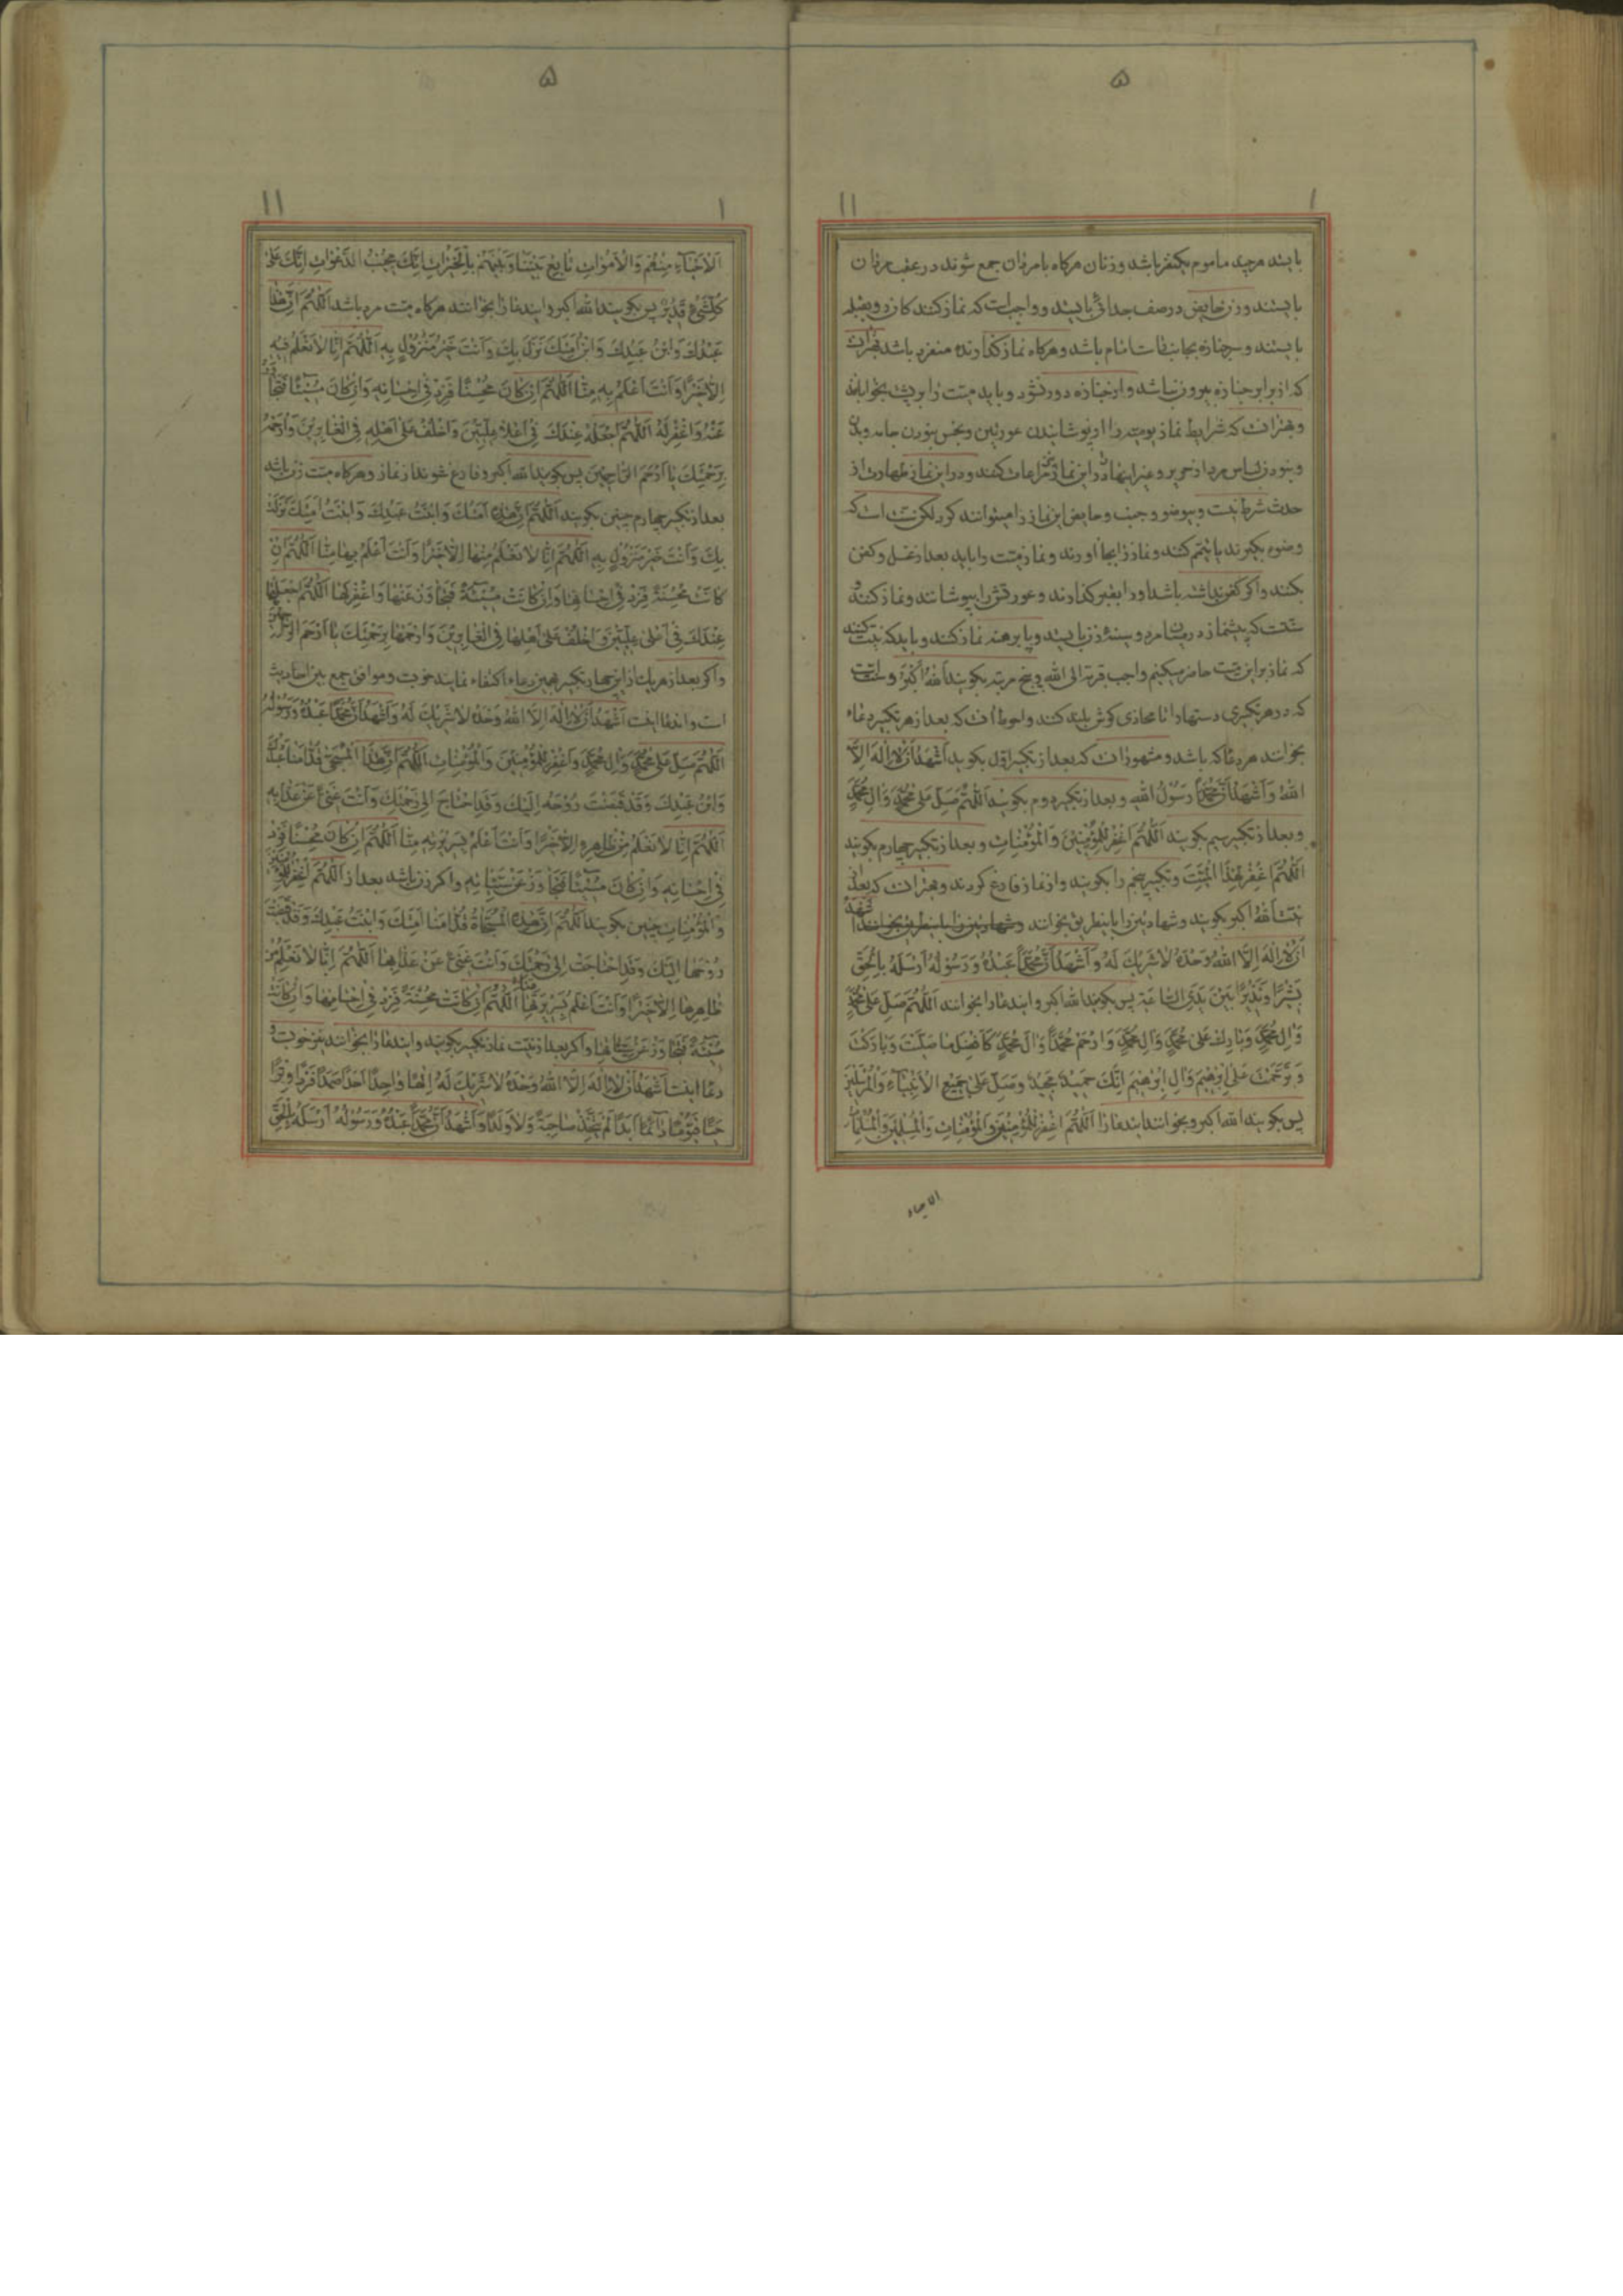 ۵
۱۱ ۱
بایستد هرچند ماموم یکنفر باشد و زنان هرکاه با مردان جمع شوند در عقب مردان
بایستند و زن حایض در صف جدائی بایستد و واجبست که نماز کنند کان رو بقبله
بایستند و سر جنازه بجانب راست امام باشد و هرکاه نماز کذارنده منفرد باشد بهتر آن
که از برابر جنازه بیرون نباشد و از جنازه دور نشود و باید میت را بر پشت بخوابانند
و بهتر آنست که شرایط نماز یومیه را از پوشانیدن عورتین و نجس نبودن جامه و بدن
و نبودن لباس مرد از حریر و غیر اینها در این نماز نیز مراعات کنند و در این نماز طهارت از
حدث شرط نیست و بیوضو و جنب و حایض این نماز را میتوانند کرد لکن سنت است که
وضو بکیرند یا تیمم کنند و نماز را بجا آورند و نماز میت را باید بعد از غسل و کفن
بکنند و اکر کفن نداشته باشد او را بقبر کذارند و عورتش را بپوشانند و نماز کنند و
سنتست که پیشنماز در میان مرد و سینه زن بایستد و پا برهنه نماز کند و باید که نیت کنند
که نماز بر این میت حاضر میکنیم واجب قربة الی الله و پنج مرتبه بکویند اَللهُ اَکْبَرُ و سنت است
که در هر تکبیری دستها را تا محاذی کوش بلند کنند و احوط آنست که بعد از هر تکبیر دعاء
بخوانند هر دعا که باشد و مشهور آنست که بعد از تکبیر اول بکوید اَشْهَدُ اَنْ لا اِلهَ اِلاَّ
اللهُ وَ اَشْهَدُ اَنَّ مُحَمَّداً رَسُولُ اللهِ و بعد از تکبیر دوم بکویند اَللّهُمَّ صَلِّ عَلی مُحَمَّدٍ وَ الِ مُحَمَّدٍ
و بعد از تکبیر سیم بکویند اَللّهُمَّ اغْفِرْ لِلْمُؤْمِنینَ وَ الْمُؤْمِناتِ و بعد از تکبیر چهارم بکویند
اَللّهُمَّ اغْفِرْ لِهذَا الْمَیِّتِ و تکبیر پنجم را بکویند و از نماز فارغ کردند و بهتر آنست که بعد از
نیت اَللهُ اکبر بکویند و شهادتین را باینطریق بخوانند اَشْهَدُ
اَنْ لا اِلهَ اِلاَّ اللهُ وَحْدَهُ لا شَریکَ لَهُ وَ اَشْهَدُ اَنَّ مُحَمَّداً عَبْدُهُ وَ رَسُولُهُ اَرْسَلَهُ بِالْحَقِّ
بَشیراً وَ نَذیراً بَیْنَ یَدَیِ السّاعَةِ پس بکویند الله اکبر و ایندعا را بخوانند اَللّهُمَّ صَلِّ عَلی مُحَمَّدٍ
وَ الِ مُحَمَّدٍ وَ بارِکْ عَلی مُحَمَّدٍ وَ الِ مُحَمَّدٍ وَ ارْحَمْ مُحَمَّداً وَ الَ مُحَمَّدٍ کَاَفْضَلِ ما صَلَّیْتَ وَ بارَکْتَ
وَ تَرَحَّمْتَ عَلی اِبْرهیمَ وَ الِ اِبْرهیمَ اِنَّکَ حَمیدٌ مَجیدٌ وَ صَلِّ عَلی جَمیعِ الْاَنْبِیاءِ وَ الْمُرْسَلینَ
پس بکویند الله اکبر و بخوانند ایندعا را اَللّهُمَّ اغْفِرْ لِلْمُؤْمِنینَ وَ الْمُؤْمِناتِ وَ الْمُسْلِمینَ وَ الْمُسْلِماتِ
الاحیاء
۵
۱۱ ۱
اَلْاَحْیاءِ مِنْهُمْ وَ الْاَمْواتِ تابِعْ بَیْنَنا وَ بَیْنَهُمْ بِالْخَیْراتِ اِنَّکَ مُجیبُ الدَّعَواتِ اِنَّکَ عَلی
کُلِّ شَیْءٍ قَدیرٌ پس بکویند الله اکبر و ایندعا را بخوانند هرکاه میت مرد باشد اَللّهُمَّ اِنَّ هذا
عَبْدُکَ وَ ابْنُ عَبْدِکَ وَ ابْنُ اَمَتِکَ نَزَلَ بِکَ وَ اَنْتَ خَیْرُ مَنْزُولٍ بِهِ اَللّهُمَّ اِنّا لا نَعْلَمُ مِنْهُ
اِلاّ خَیْراً وَ اَنْتَ اَعْلَمُ بِهِ مِنّا اَللّهُمَّ اِنْ کانَ مُحْسِناً فَزِدْ فی اِحْسانِهِ وَ اِنْ کانَ مُسیئاً فَتَجاوَزْ
عَنْهُ وَ اغْفِرْ لَهُ اَللّهُمَّ اجْعَلْهُ عِنْدَکَ فی اَعْلا عِلِّیّینَ وَ اخْلُفْ عَلی اَهْلِهِ فِی الْغابِرینَ وَ ارْحَمْهُ
بِرَحْمَتِکَ یا اَرْحَمَ الرّاحِمینَ پس بکویند الله اکبر و فارغ شوند از نماز و هرکاه میت زن باشد
بعد از تکبیر چهارم چنین بکویند اَللّهُمَّ اِنَّ هذِهِ اَمَتُکَ وَ ابْنَتُ عَبْدِکَ وَ ابْنَتُ اَمَتِکَ نَزَلَتْ
بِکَ وَ اَنْتَ خَیْرُ مَنْزُولٍ بِهِ اَللّهُمَّ اِنّا لا نَعْلَمُ مِنْها اِلاّ خَیْراً وَ اَنْتَ اَعْلَمُ بِها مِنّا اَللّهُمَّ اِنْ
کانَتْ مُحْسِنَةً فَزِدْ فی اِحْسانِها وَ اِنْ کانَتْ مُسیئَةً فَتَجاوَزْ عَنْها وَ اغْفِرْ لَها اَللّهُمَّ اجْعَلْها
عِنْدَکَ فی اَعْلی عِلِّیّینَ وَ اخْلُفْ عَلی اَهْلِها فِی الْغابِرینَ وَ ارْحَمْها بِرَحْمَتِکَ یا اَرْحَمَ الرّاحِمینَ
و اکر بعد از هر یک از این چهار تکبیر بهمین دعاء اکتفاء نمایند خوبست و موافق جمع بین احادیث
است و ایندعا اینست اَشْهَدُ اَنْ لا اِلهَ اِلاَّ اللهُ وَحْدَهُ لا شَریکَ لَهُ وَ اَشْهَدُ اَنَّ مُحَمَّداً عَبْدُهُ وَ رَسُولُهُ
اَللّهُمَّ صَلِّ عَلی مُحَمَّدٍ وَ الِ مُحَمَّدٍ وَ اغْفِرْ لِلْمُؤْمِنینَ وَ الْمُؤْمِناتِ اَللّهُمَّ اِنَّ هذَا الْمُسَجّی قُدّامَنا عَبْدُکَ
وَ ابْنُ عَبْدِکَ وَ قَدْ قَبَضْتَ رُوحَهُ اِلَیْکَ وَ قَدِ احْتاجَ اِلی رَحْمَتِکَ وَ اَنْتَ غَنِیٌّ عَنْ عَذابِهِ
اَللّهُمَّ اِنّا لا نَعْلَمُ مِنْ ظاهِرِهِ اِلاّ خَیْراً وَ اَنْتَ اَعْلَمُ بِسَریرَتِهِ مِنّا اَللّهُمَّ اِنْ کانَ مُحْسِناً فَزِدْ
فی اِحْسانِهِ وَ اِنْ کانَ مُسیئاً فَتَجاوَزْ عَنْ سَیِّئاتِهِ و اکر زن باشد بعد از اَللّهُمَّ اغْفِرْ لِلْمُؤْمِنینَ
وَ الْمُؤْمِناتِ چنین بکویند اَللّهُمَّ اِنَّ هذِهِ الْمُسَجّاةَ قُدّامَنا اَمَتُکَ وَ ابْنَتُ عَبْدِکَ وَ قَدْ قَبَضْتَ
رُوحَها اِلَیْکَ وَ قَدِ احْتاجَتْ اِلی رَحْمَتِکَ وَ اَنْتَ غَنِیٌّ عَنْ عَذابِها اَللّهُمَّ اِنّا لا نَعْلَمُ مِنْ
ظاهِرِها اِلاّ خَیْراً وَ اَنْتَ اَعْلَمُ بِسَریرَتِها مِنّا اَللّهُمَّ اِنْ کانَتْ مُحْسِنَةً فَزِدْ فی اِحْسانِها وَ اِنْ کانَتْ
مُسیئَةً فَتَجاوَزْ عَنْ سَیِّئاتِها و اکر بعد از نیت نماز تکبیر بکویند و ایندعا را بخوانند نیز خوبست و
دعا اینست اَشْهَدُ اَنْ لا اِلهَ اِلاَّ اللهُ وَحْدَهُ لا شَریکَ لَهُ اِلهاً واحِداً اَحَداً صَمَداً فَرْداً وِتْراً
حَیّاً قَیُّوماً دائِماً اَبَداً لَمْ یَتَّخِذْ صاحِبَةً وَ لا وَلَداً وَ اَشْهَدُ اَنَّ مُحَمَّداً عَبْدُهُ وَ رَسُولُهُ اَرْسَلَهُ بِالْحَقِّ